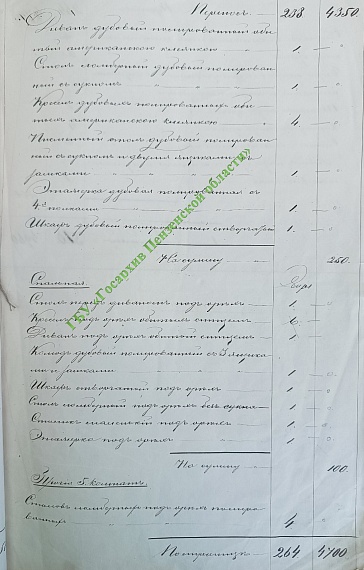 Перенос — 238 — 4350.
Диван дубовый полированный оби-
тый американскою клеянкою — 1 — "
Стол ломберный дубовый полирован-
ный с сукном — 1 — "
Кресел дубовых полированных оби-
тых американскою клеянкою — 4 — "
Письменный стол дубовый полирован-
ный с сукном и двумя ящиками с
замками — 1 — "
Этажерка дубовая полированная с
4й полками — 1 — "
Шкаф дубовый полированный створчатый 1. — "
На сумму — 250.
Спальная.
Стол перед диваном под орех — 1 — "
Кресел под орех обитых ситцем — 6 — "
Диван под орех обитый ситцем — 1 — "
Комод дубовый полированный с 3 ящика-
ми и замками — 1 — "
Шкаф створчатый под орех — 1 — "
Стол ломберный под орех без сукна — 1 — "
Столик маленький под орех — 1 — "
Этажерка под орех — 1 — "
На сумму — 100.
5. комнат.
Столов ломберных под орех полиро-
ванных — 4 — "
264 4700
ГБУ «Госархив Пензенской области»